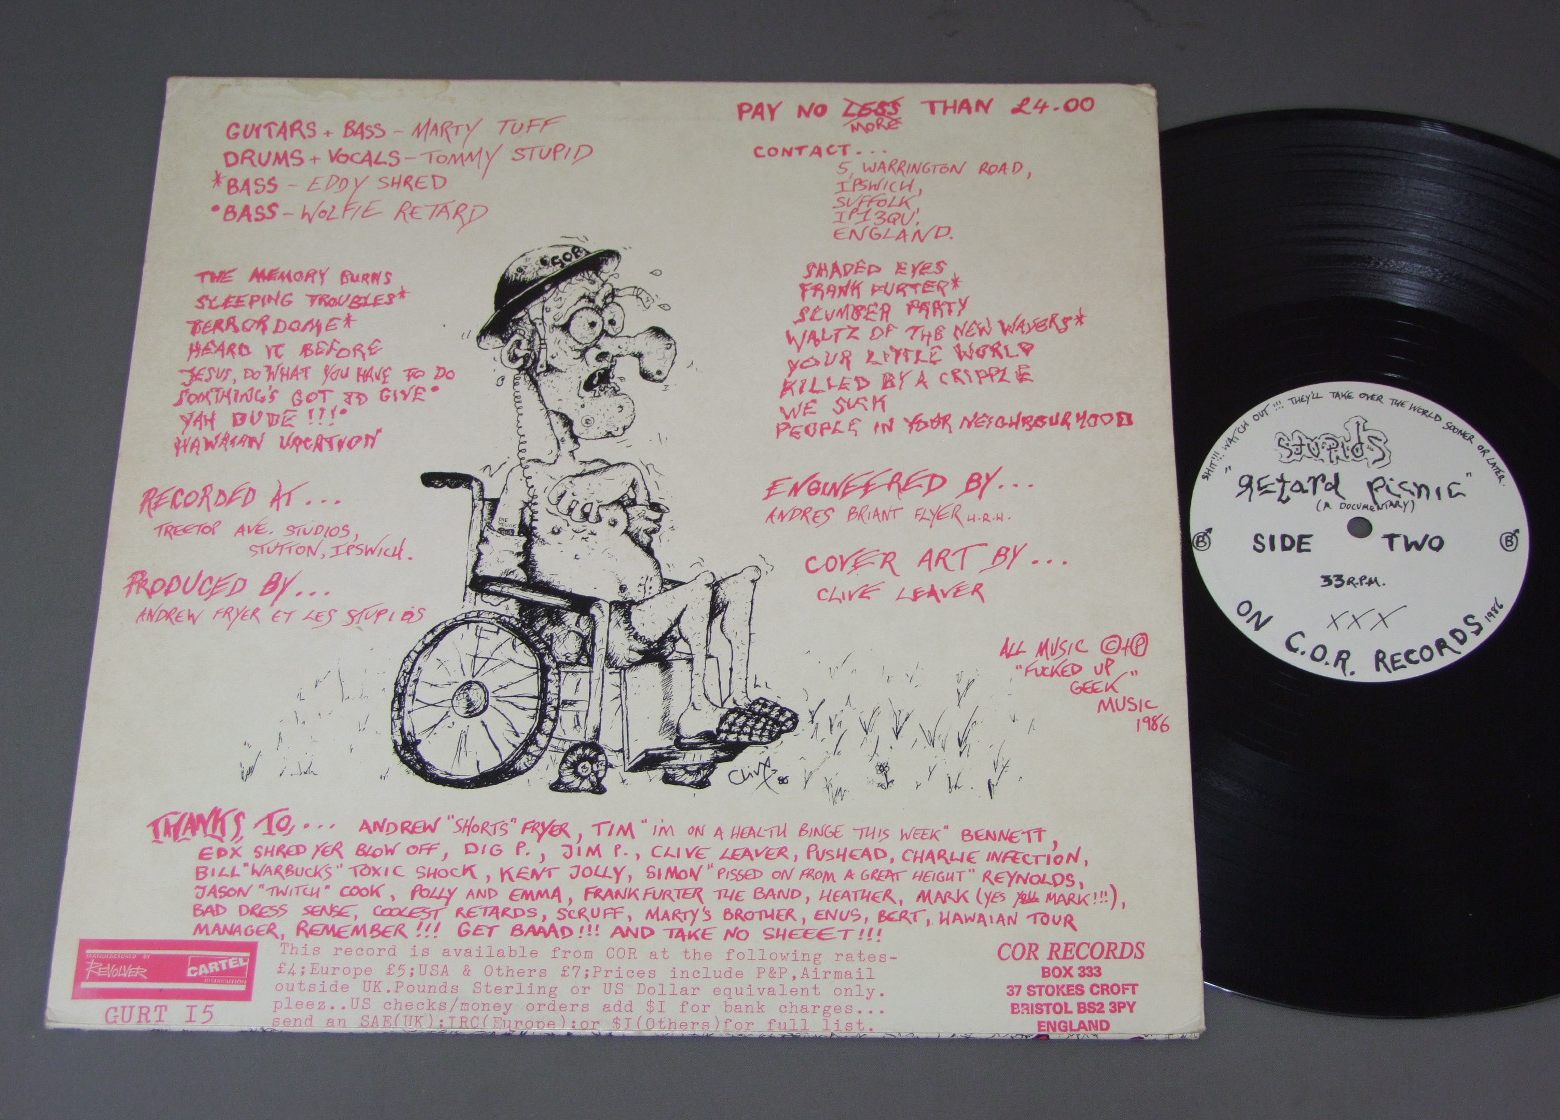 GUITARS + BASS - MARTY TUFF
DRUMS + VOCALS - TOMMY STUPID
*BASS - EDDY SHRED
•BASS - WOLFIE RETARD
PAY NO LESS THAN £4.00
MORE
CONTACT...
5, WARRINGTON ROAD,
IPSWICH,
SUFFOLK
IP1 3QU.
ENGLAND.
SOB
THE MEMORY BURNS
SLEEPING TROUBLES*
TERRORDOME*
HEARD IT BEFORE
JESUS, DO WHAT YOU HAVE TO DO
SOMTHING'S GOT TO GIVE•
YAH DUDE!!!•
HAWAIAN VACATION
SHADED EYES
FRANK FURTER*
SLUMBER PARTY
WALTZ OF THE NEW WAVERS*
YOUR LITTLE WORLD
KILLED BY A CRIPPLE
WE SUCK
PEOPLE IN YOUR NEIGHBOURHOOD
RECORDED AT...
TREETOP AVE. STUDIOS,
STUTTON, IPSWICH.
PRODUCED BY...
ANDREW FRYER ET LES STUPIDS
ENGINEERED BY...
ANDRES BRIANT FLYER H.R.H.
COVER ART BY...
CLIVE LEAVER
ALL MUSIC © + ℗
"FUCKED UP
GEEK"
MUSIC
1986
CLIVE 86
THANKS TO,... ANDREW "SHORTS" FRYER, TIM "I'M ON A HEALTH BINGE THIS WEEK" BENNETT,
EDX SHRED YER BLOW OFF, DIG P., JIM P., CLIVE LEAVER, PUSHEAD, CHARLIE INFECTION,
BILL "WARBUCKS" TOXIC SHOCK, KENT JOLLY, SIMON "PISSED ON FROM A GREAT HEIGHT" REYNOLDS,
JASON "TWITCH" COOK, POLLY AND EMMA, FRANKFURTER THE BAND, HEATHER, MARK (YES MARK!!!),
BAD DRESS SENSE, COOLEST RETARDS, SCRUFF, MARTY'S BROTHER, ENUS, BERT, HAWAIAN TOUR
MANAGER, REMEMBER!!! GET BAAAD!!! AND TAKE NO SHEEET!!!
MANUFACTURED BY
REVOLVER
CARTEL
DISTRIBUTION
GURT 15
This record is available from COR at the following rates-
£4;Europe £5;USA & Others £7;Prices include P&P,Airmail
outside UK.Pounds Sterling or US Dollar equivalent only.
pleez..US checks/money orders add $I for bank charges...
send an SAE(UK);IRC(Europe);or $I(Others)for full list.
COR RECORDS
BOX 333
37 STOKES CROFT
BRISTOL BS2 3PY
ENGLAND
SHIT!!! WATCH OUT!!! THEY'LL TAKE OVER THE WORLD SOONER OR LATER.
STUPIDS
"Retard Picnic"
(A DOCUMENTARY)
B SIDE TWO B
33 R.P.M.
XXX
ON C.O.R. RECORDS 1986